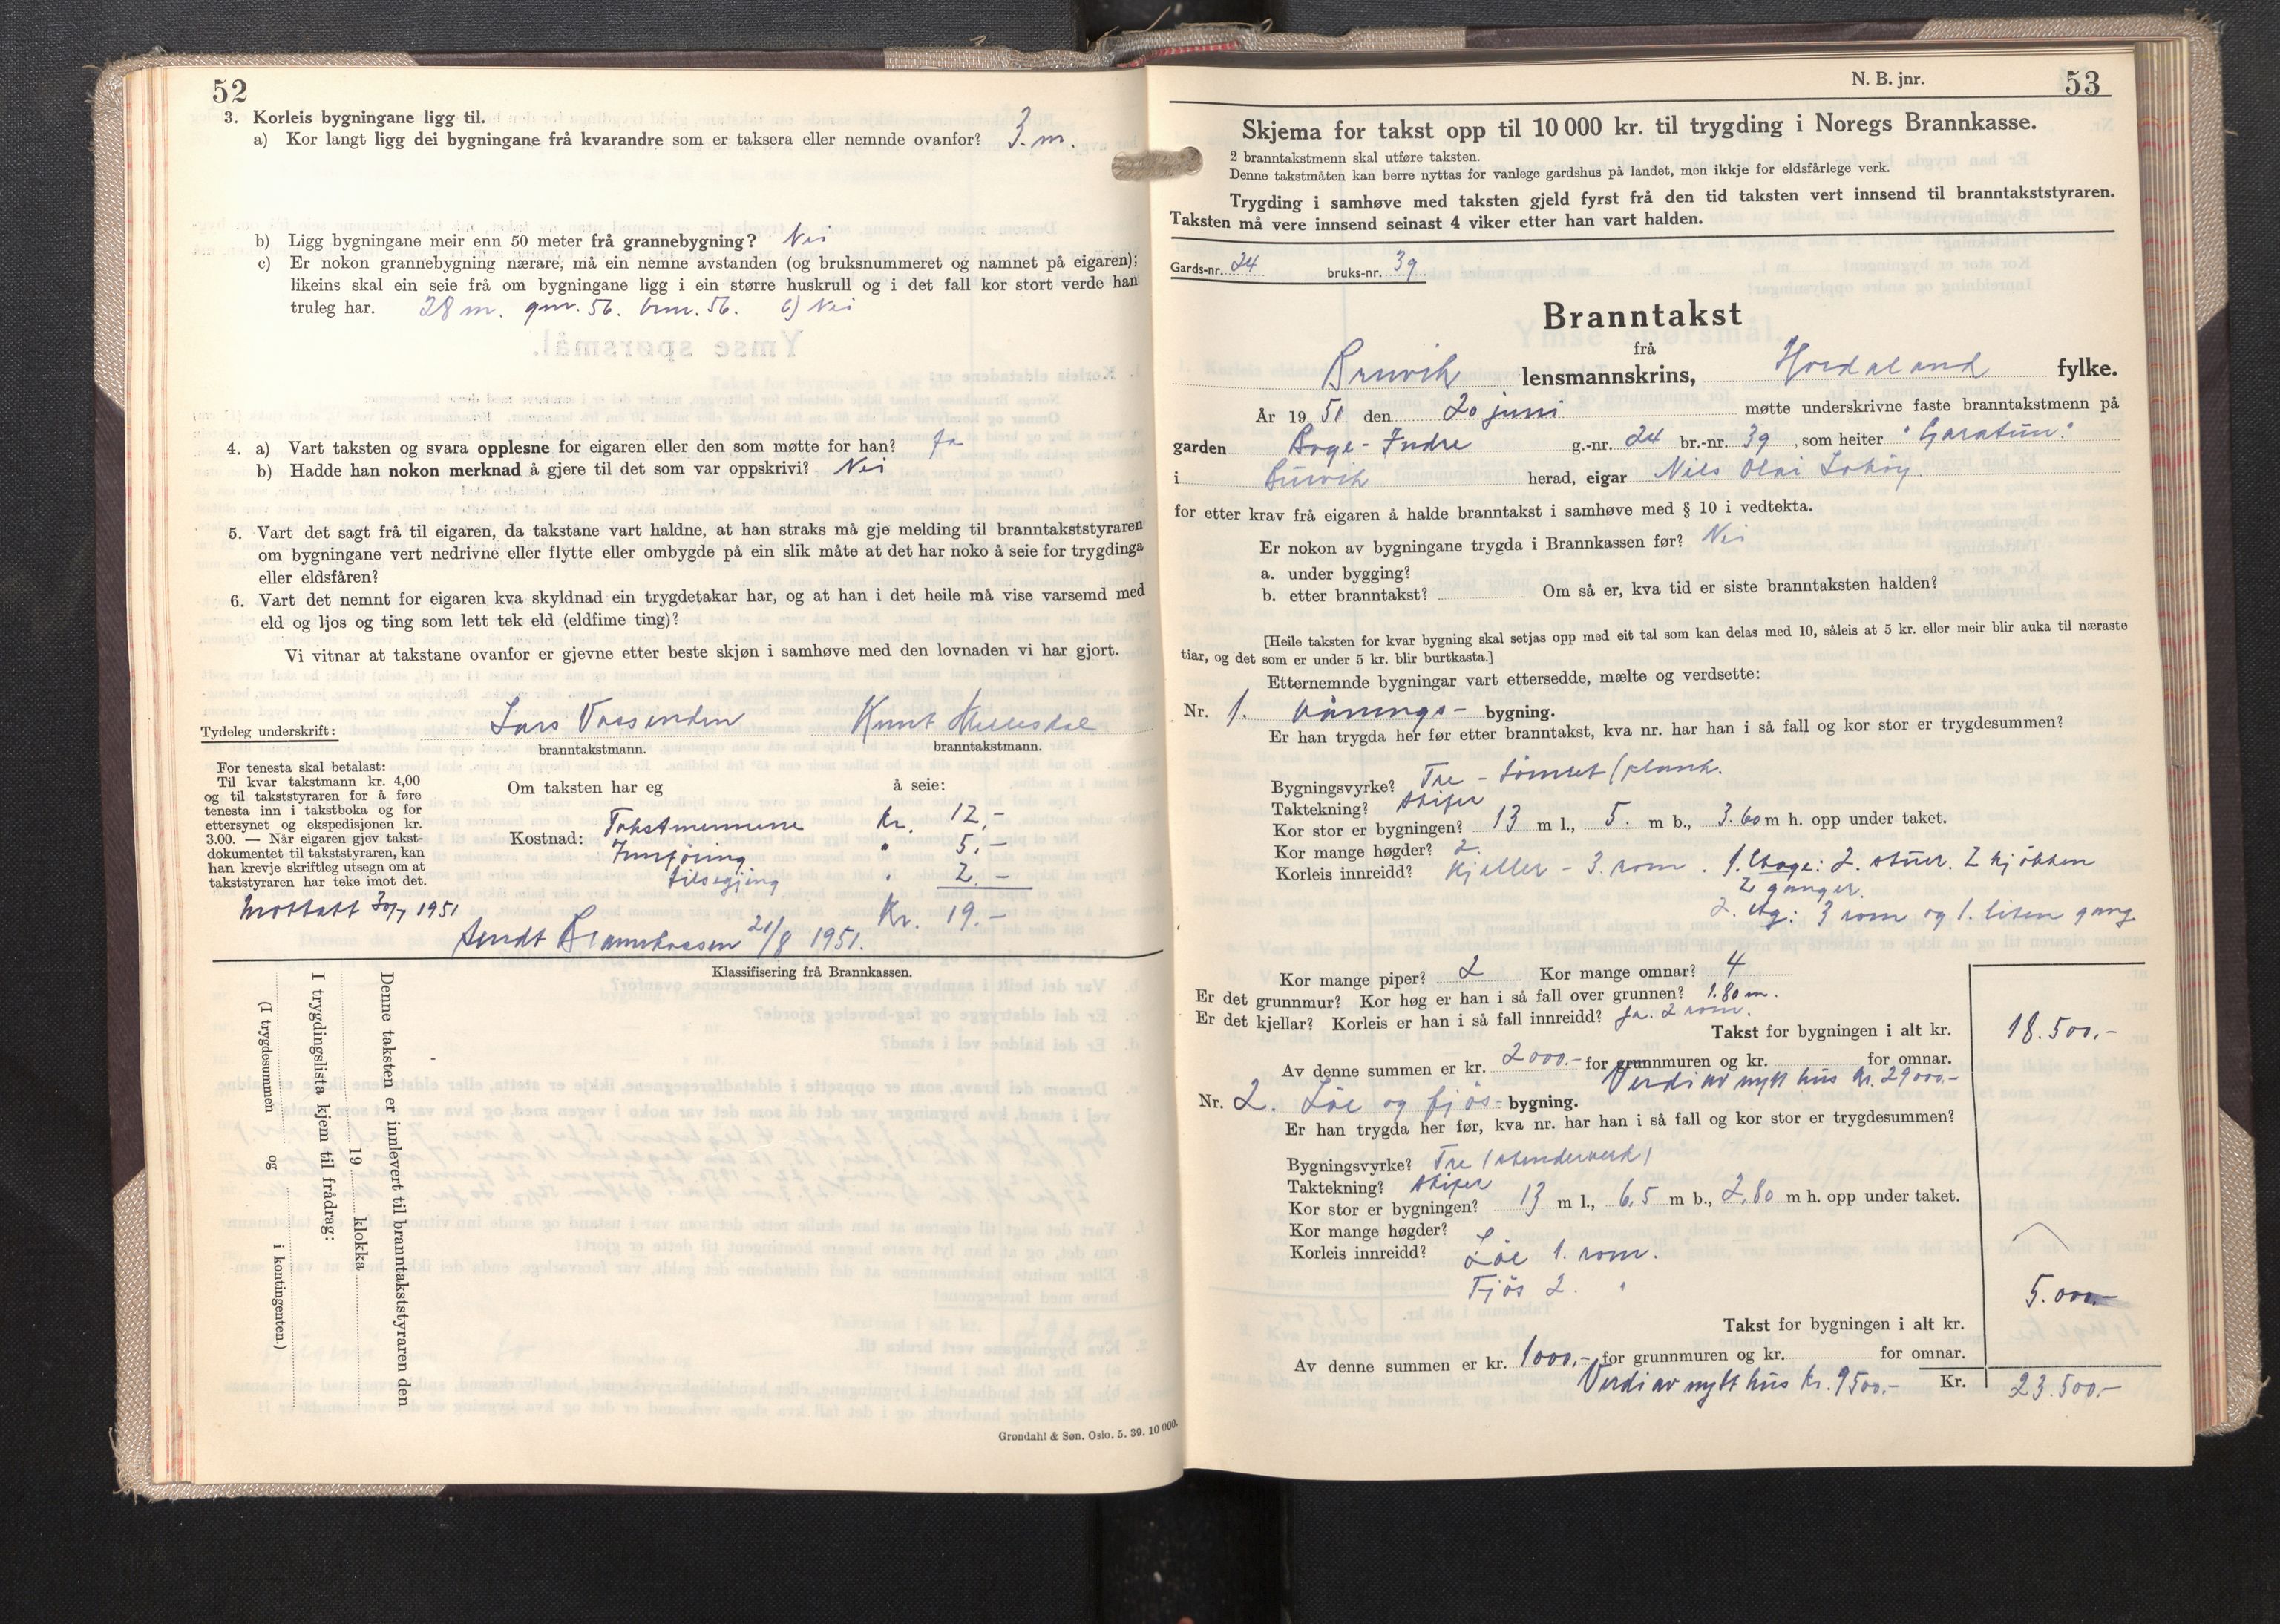 52
3. Korleis bygningane ligg til.
a) Kor langt ligg dei bygningane frå kvarandre som er taksera eller nemnde ovanfor? 3. m.
b) Ligg bygningane meir enn 50 meter frå grannebygning? Nei
c) Er nokon grannebygning nærare, må ein nemne avstanden (og bruksnummeret og namnet på eigaren);
likeins skal ein seie frå om bygningane ligg i ein større huskrull og i det fall kor stort verde han
truleg har. 28 m. gnr. 56. bnr. 56. c) Nei
4. a) Vart taksten og svara opplesne for eigaren eller den som møtte for han? Ja
b) Hadde han nokon merknad å gjere til det som var oppskrivi? Nei
5. Vart det sagt frå til eigaren, da takstane vart haldne, at han straks må gje melding til branntakststyraren
om bygningane vert nedrivne eller flytte eller ombygde på ein slik måte at det har noko å seie for trygdinga
eller eldsfåren?
6. Vart det nemnt for eigaren kva skyldnad ein trygdetakar har, og at han i det heile må vise varsemd med
eld og ljos og ting som lett tek eld (eldfime ting)?
Vi vitnar at takstane ovanfor er gjevne etter beste skjøn i samhøve med den lovnaden vi har gjort.
Tydeleg underskrift: Lars Vassenden Knut
branntakstmann. branntakstmann.
For tenesta skal betalast:
Til kvar takstmann kr. 4,00
og til takststyraren for å føre
tenesta inn i takstboka og for
ettersynet og ekspedisjonen kr.
3.00. — Når eigaren gjev takst-
dokumentet til takststyraren, kan
han krevje skriftleg utsegn om at
takststyraren har teke imot det.
Om taksten har eg å seie:
Kostnad: Takstmennene Kr. 12,-
Innføring " 5.-
" 2.-
Kr. 19.-
Mottatt 30/7 1951
21/8 1951.
Klassifisering frå Brannkassen.
Denne taksten er innlevert til branntakststyraren den
19 klokka
I trygdingslista kjem til frådrag:
(I trygdesummen og i kontingenten.)
Grøndahl & Søn. Oslo. 5. 39. 10 000.
N. B. jnr. 53
Skjema for takst opp til 10 000 kr. til trygding i Noregs Brannkasse.
2 branntakstmenn skal utføre taksten.
Denne takstmåten kan berre nyttas for vanlege gardshus på landet, men ikkje for eldsfårlege verk.
Trygding i samhøve med taksten gjeld fyrst frå den tid taksten vert innsend til branntakststyraren.
Taksten må vere innsend seinast 4 viker etter han vart halden.
Gards-nr. 24 bruks-nr. 39
Branntakst
frå
Bruvik lensmannskrins, Hordaland fylke.
År 19 51 den 20 juni møtte underskrivne faste branntakstmenn på
garden Boge-Indre g.-nr. 24 br.-nr. 39, som heiter "Garatun."
i Bruvik herad, eigar Nils Olai
for etter krav frå eigaren å halde branntakst i samhøve med § 10 i vedtekta.
Er nokon av bygningane trygda i Brannkassen før? Nei
a. under bygging?
b. etter branntakst? Om så er, kva tid er siste branntaksten halden?
[Heile taksten for kvar bygning skal setjas opp med eit tal som kan delas med 10, såleis at 5 kr. eller meir blir auka til næraste
tiar, og det som er under 5 kr. blir burtkasta.]
Etternemnde bygningar vart ettersedde, mælte og verdsette:
Nr. 1. Vånings- bygning.
Er han trygda her før etter branntakst, kva nr. har han i så fall og kor stor er trygdesummen?
Bygningsvyrke? Tre - tømret (plank.
Taktekning? skifer
Kor stor er bygningen? 13 m l., 5. m b., 3.60 m h. opp under taket.
Kor mange høgder? 2.
Korleis innreidd? Kjeller - 3. rom. 1. Etage: 2. stuer. 2 kjøkken
2 ganger.
2. etg: 3 rom og 1. liten gang
Kor mange piper? 2 Kor mange omnar? 4
Er det grunnmur? Kor høg er han i så fall over grunnen? 1.80 m.
Er det kjellar? Korleis er han i så fall innreidd? ja. 2 rom.
Takst for bygningen i alt kr. 18.500,-
Av denne summen er kr. 2000.- for grunnmuren og kr. for omnar.
Verdi av nytt hus Kr. 29000.-
Nr. 2. Löe og fjös- bygning.
Er han trygda her før, kva nr. har han i så fall og kor stor er trygdesummen?
Bygningsvyrke? Tre (stenderverk)
Taktekning? skifer
Kor stor er bygningen? 13 m l., 6.5 m b., 2,80 m h. opp under taket.
Kor mange høgder?
Korleis innreidd? Löe 1. rom.
Fjös 2. "
5.000.-
Takst for bygningen i alt kr.
Av denne summen er kr. 1000,- for grunnmuren og kr. for omnar.
Verdi av nytt hus Kr. 9500.- Kr. 23.500,-